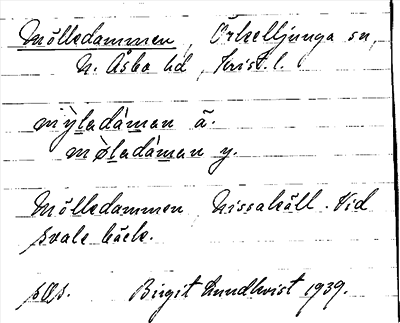 Mölledammen, Örkelljunga sn,
N. Åsbo hd, Krist. l.
mỳladáman ä.
mø̀ladáman y.
Mölledammen, Nissakäll. Vid
svale bäck.
Birgit Lundkvist 1939.